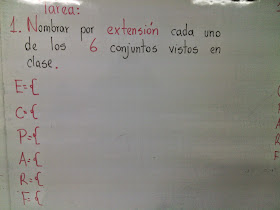 Tarea:
1. Nombrar por extensión cada uno
de los 6 conjuntos vistos en
clase.
E={
C={
P={
A={
R={
F={